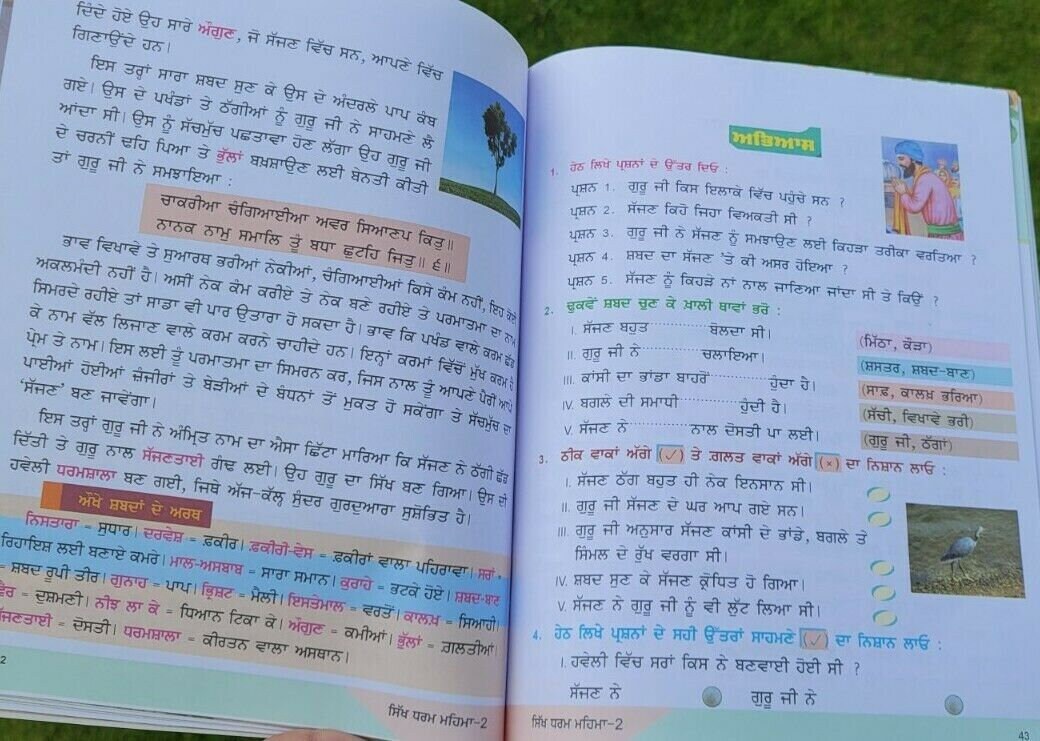 ਦਿੰਦੇ ਹੋਏ ਉਹ ਸਾਰੇ ਔਗੁਣ, ਜੋ ਸੱਜਣ ਵਿੱਚ ਸਨ, ਆਪਣੇ ਵਿੱਚ
ਗਿਣਾਉਂਦੇ ਹਨ।
ਇਸ ਤਰ੍ਹਾਂ ਸਾਰਾ ਸ਼ਬਦ ਸੁਣ ਕੇ ਉਸ ਦੇ ਅੰਦਰਲੇ ਪਾਪ ਕੰਬ
ਗਏ। ਉਸ ਦੇ ਪਖੰਡਾਂ ਤੇ ਠੱਗੀਆਂ ਨੂੰ ਗੁਰੂ ਜੀ ਨੇ ਸਾਹਮਣੇ ਲੈ
ਆਂਦਾ ਸੀ। ਉਸ ਨੂੰ ਸੱਚਮੁੱਚ ਪਛਤਾਵਾ ਹੋਣ ਲੱਗਾ ਉਹ ਗੁਰੂ ਜੀ
ਦੇ ਚਰਨੀਂ ਢਹਿ ਪਿਆ ਤੇ ਭੁੱਲਾਂ ਬਖ਼ਸ਼ਾਉਣ ਲਈ ਬੇਨਤੀ ਕੀਤੀ
ਤਾਂ ਗੁਰੂ ਜੀ ਨੇ ਸਮਝਾਇਆ :
ਚਾਕਰੀਆ ਚੰਗਿਆਈਆ ਅਵਰ ਸਿਆਣਪ ਕਿਤੁ॥
ਨਾਨਕ ਨਾਮੁ ਸਮਾਲਿ ਤੂੰ ਬਧਾ ਛੁਟਹਿ ਜਿਤੁ॥ ੬॥
ਭਾਵ ਵਿਖਾਵੇ ਤੇ ਸੁਆਰਥ ਭਰੀਆਂ ਨੇਕੀਆਂ, ਚੰਗਿਆਈਆਂ ਕਿਸੇ ਕੰਮ ਨਹੀਂ, ਇਹ ਕੋਈ
ਅਕਲਮੰਦੀ ਨਹੀਂ ਹੈ। ਅਸੀਂ ਨੇਕ ਕੰਮ ਕਰੀਏ ਤੇ ਨੇਕ ਬਣੇ ਰਹੀਏ ਤੇ ਪਰਮਾਤਮਾ ਦਾ ਨਾਮ
ਸਿਮਰਦੇ ਰਹੀਏ ਤਾਂ ਸਾਡਾ ਵੀ ਪਾਰ ਉਤਾਰਾ ਹੋ ਸਕਦਾ ਹੈ। ਭਾਵ ਕਿ ਪਖੰਡ ਵਾਲੇ ਕਰਮ ਛੱਡ
ਕੇ ਨਾਮ ਵੱਲ ਲਿਜਾਣ ਵਾਲੇ ਕਰਮ ਕਰਨੇ ਚਾਹੀਦੇ ਹਨ। ਇਨ੍ਹਾਂ ਕਰਮਾਂ ਵਿੱਚੋਂ ਮੁੱਖ ਕਰਮ ਹੈ
ਪ੍ਰੇਮ ਤੇ ਨਾਮ। ਇਸ ਲਈ ਤੂੰ ਪਰਮਾਤਮਾ ਦਾ ਸਿਮਰਨ ਕਰ, ਜਿਸ ਨਾਲ ਤੂੰ ਆਪਣੇ ਪੈਰੀਂ ਆਪੇ
ਪਾਈਆਂ ਹੋਈਆਂ ਜ਼ੰਜੀਰਾਂ ਤੇ ਬੇੜੀਆਂ ਦੇ ਬੰਧਨਾਂ ਤੋਂ ਮੁਕਤ ਹੋ ਸਕੇਂਗਾ ਤੇ ਸੱਚਮੁੱਚ ਦਾ
‘ਸੱਜਣ’ ਬਣ ਜਾਵੇਂਗਾ।
ਇਸ ਤਰ੍ਹਾਂ ਗੁਰੂ ਜੀ ਨੇ ਅੰਮ੍ਰਿਤ ਨਾਮ ਦਾ ਐਸਾ ਛਿੱਟਾ ਮਾਰਿਆ ਕਿ ਸੱਜਣ ਨੇ ਠੱਗੀ ਛੱਡ
ਦਿੱਤੀ ਤੇ ਗੁਰੂ ਨਾਲ ਸੱਜਣਤਾਈ ਗੰਢ ਲਈ। ਉਹ ਗੁਰੂ ਦਾ ਸਿੱਖ ਬਣ ਗਿਆ। ਉਸ ਦੀ
ਹਵੇਲੀ ਧਰਮਸ਼ਾਲਾ ਬਣ ਗਈ, ਜਿਥੇ ਅੱਜ-ਕੱਲ੍ਹ ਸੁੰਦਰ ਗੁਰਦੁਆਰਾ ਸੁਸ਼ੋਭਿਤ ਹੈ।
ਔਖੇ ਸ਼ਬਦਾਂ ਦੇ ਅਰਥ
ਨਿਸਤਾਰਾ = ਸੁਧਾਰ। ਦਰਵੇਸ਼ = ਫ਼ਕੀਰ। ਫ਼ਕੀਰੀ-ਵੇਸ = ਫ਼ਕੀਰਾਂ ਵਾਲਾ ਪਹਿਰਾਵਾ। ਸਰਾਂ =
ਰਿਹਾਇਸ਼ ਲਈ ਬਣਾਏ ਕਮਰੇ। ਮਾਲ-ਅਸਬਾਬ = ਸਾਰਾ ਸਮਾਨ। ਕੁਰਾਹੇ = ਭਟਕੇ ਹੋਏ। ਸ਼ਬਦ-ਬਾਣ
= ਸ਼ਬਦ ਰੂਪੀ ਤੀਰ। ਗੁਨਾਹ = ਪਾਪ। ਭ੍ਰਿਸ਼ਟ = ਮੈਲੀ। ਇਸਤੇਮਾਲ = ਵਰਤੋਂ। ਕਾਲਖ਼ = ਸਿਆਹੀ।
= ਦੁਸ਼ਮਣੀ। ਨੀਝ ਲਾ ਕੇ = ਧਿਆਨ ਟਿਕਾ ਕੇ। ਔਗੁਣ = ਕਮੀਆਂ। ਭੁੱਲਾਂ = ਗ਼ਲਤੀਆਂ।
= ਦੋਸਤੀ। ਧਰਮਸ਼ਾਲਾ = ਕੀਰਤਨ ਵਾਲਾ ਅਸਥਾਨ।
2
ਸਿੱਖ ਧਰਮ ਮਹਿਮਾ-2
ਅਭਿਆਸ
1. ਹੇਠ ਲਿਖੇ ਪ੍ਰਸ਼ਨਾਂ ਦੇ ਉੱਤਰ ਦਿਓ :
ਪ੍ਰਸ਼ਨ 1. ਗੁਰੂ ਜੀ ਕਿਸ ਇਲਾਕੇ ਵਿੱਚ ਪਹੁੰਚੇ ਸਨ ?
ਪ੍ਰਸ਼ਨ 2. ਸੱਜਣ ਕਿਹੋ ਜਿਹਾ ਵਿਅਕਤੀ ਸੀ ?
ਪ੍ਰਸ਼ਨ 3. ਗੁਰੂ ਜੀ ਨੇ ਸੱਜਣ ਨੂੰ ਸਮਝਾਉਣ ਲਈ ਕਿਹੜਾ ਤਰੀਕਾ ਵਰਤਿਆ ?
ਪ੍ਰਸ਼ਨ 4. ਸ਼ਬਦ ਦਾ ਸੱਜਣ ’ਤੇ ਕੀ ਅਸਰ ਹੋਇਆ ?
ਪ੍ਰਸ਼ਨ 5. ਸੱਜਣ ਨੂੰ ਕਿਹੜੇ ਨਾਂ ਨਾਲ ਜਾਣਿਆ ਜਾਂਦਾ ਸੀ ਤੇ ਕਿਉਂ ?
2. ਢੁਕਵੇਂ ਸ਼ਬਦ ਚੁਣ ਕੇ ਖ਼ਾਲੀ ਥਾਵਾਂ ਭਰੋ :
I. ਸੱਜਣ ਬਹੁਤ ............ ਬੋਲਦਾ ਸੀ। (ਮਿੱਠਾ, ਕੌੜਾ)
II. ਗੁਰੂ ਜੀ ਨੇ ............ ਚਲਾਇਆ। (ਸ਼ਸਤਰ, ਸ਼ਬਦ-ਬਾਣ)
III. ਕਾਂਸੀ ਦਾ ਭਾਂਡਾ ਬਾਹਰੋਂ ............ ਹੁੰਦਾ ਹੈ। (ਸਾਫ਼, ਕਾਲਖ਼ ਭਰਿਆ)
IV. ਬਗਲੇ ਦੀ ਸਮਾਧੀ ............ ਹੁੰਦੀ ਹੈ। (ਸੱਚੀ, ਵਿਖਾਵੇ ਭਰੀ)
V. ਸੱਜਣ ਨੇ ............ ਨਾਲ ਦੋਸਤੀ ਪਾ ਲਈ। (ਗੁਰੂ ਜੀ, ਠੱਗਾਂ)
3. ਠੀਕ ਵਾਕਾਂ ਅੱਗੇ (✓) ਤੇ ਗ਼ਲਤ ਵਾਕਾਂ ਅੱਗੇ (×) ਦਾ ਨਿਸ਼ਾਨ ਲਾਓ :
I. ਸੱਜਣ ਠੱਗ ਬਹੁਤ ਹੀ ਨੇਕ ਇਨਸਾਨ ਸੀ।
II. ਗੁਰੂ ਜੀ ਸੱਜਣ ਦੇ ਘਰ ਆਪ ਗਏ ਸਨ।
III. ਗੁਰੂ ਜੀ ਅਨੁਸਾਰ ਸੱਜਣ ਕਾਂਸੀ ਦੇ ਭਾਂਡੇ, ਬਗਲੇ ਤੇ
ਸਿੰਮਲ ਦੇ ਰੁੱਖ ਵਰਗਾ ਸੀ।
IV. ਸ਼ਬਦ ਸੁਣ ਕੇ ਸੱਜਣ ਕ੍ਰੋਧਿਤ ਹੋ ਗਿਆ।
V. ਸੱਜਣ ਨੇ ਗੁਰੂ ਜੀ ਨੂੰ ਵੀ ਲੁੱਟ ਲਿਆ ਸੀ।
4. ਹੇਠ ਲਿਖੇ ਪ੍ਰਸ਼ਨਾਂ ਦੇ ਸਹੀ ਉੱਤਰਾਂ ਸਾਹਮਣੇ (✓) ਦਾ ਨਿਸ਼ਾਨ ਲਾਓ :
I. ਹਵੇਲੀ ਵਿੱਚ ਸਰਾਂ ਕਿਸ ਨੇ ਬਣਵਾਈ ਹੋਈ ਸੀ ?
ਸੱਜਣ ਨੇ ਗੁਰੂ ਜੀ ਨੇ
ਸਿੱਖ ਧਰਮ ਮਹਿਮਾ-2
43